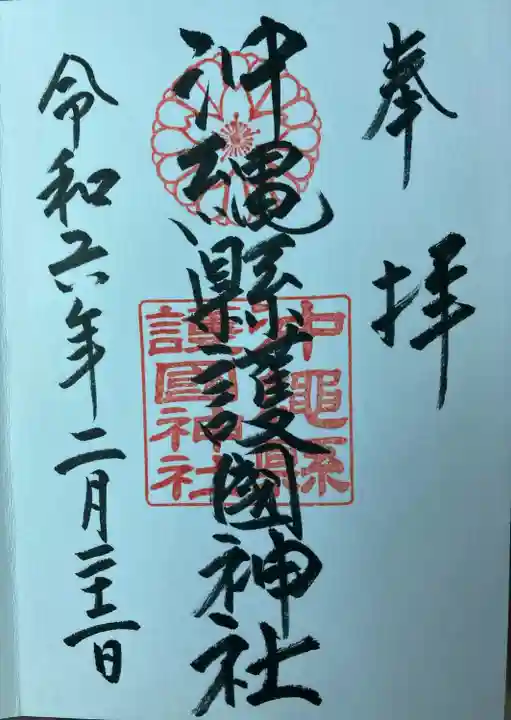 奉拝
沖縄縣護國神社
沖縄縣
護國神社
令和六年二月二十二日